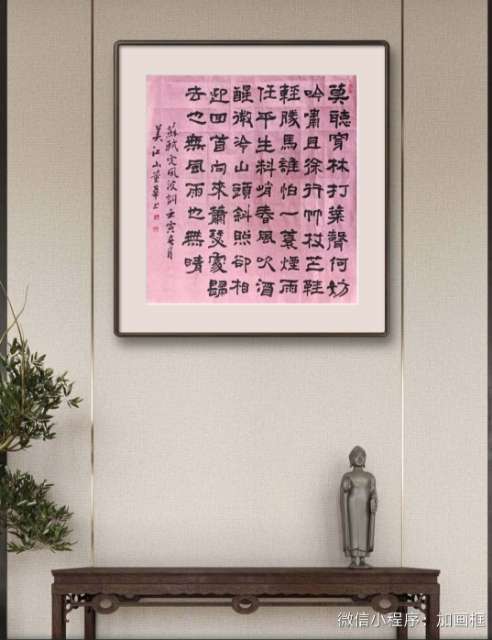 莫聽穿林打葉聲何妨
吟嘯且徐行竹杖芒鞋
輕勝馬誰怕一蓑煙雨
任平生料峭春風吹酒
醒微冷山頭斜照卻相
迎回首向來蕭瑟處歸
去也無風雨也無晴
蘇軾定風波詞壬寅春月
吴江
微信小程序：加画框